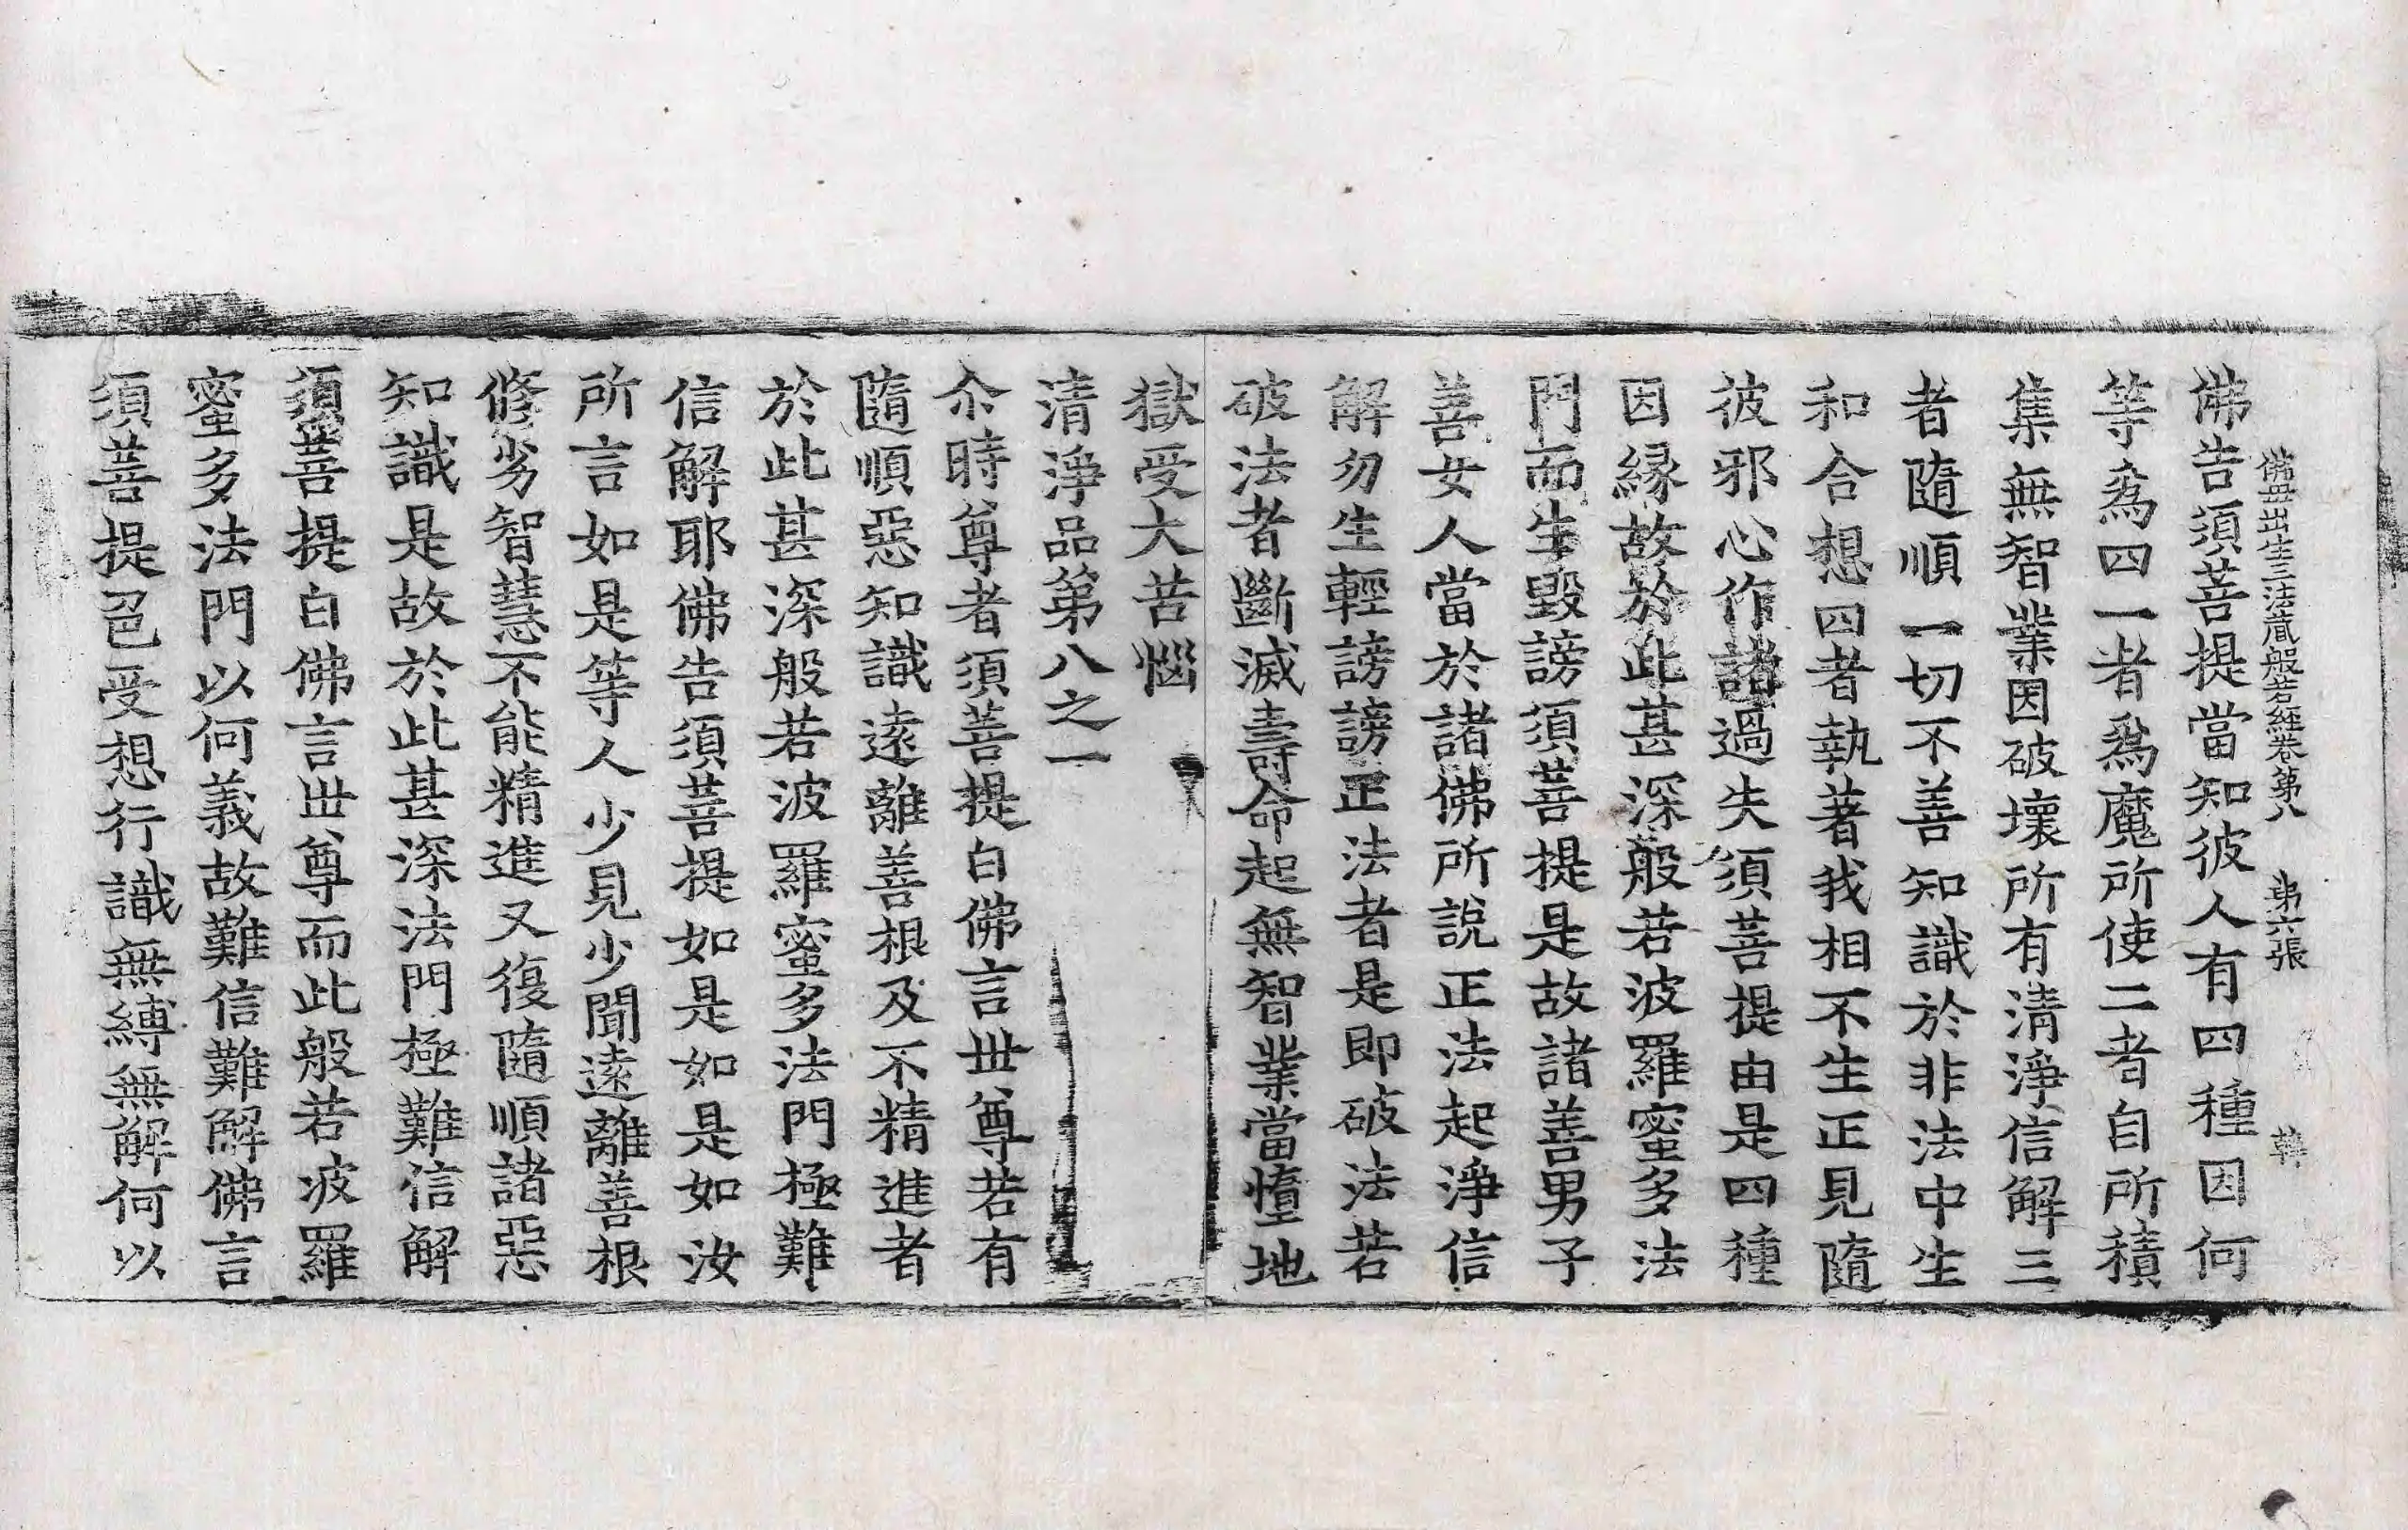 佛母出生三法藏般若經卷第八 第六張 韓
佛告須菩提當知彼人有四種因何
等爲四一者爲魔所使二者自所積
集無智業因破壞所有清淨信解三
者隨順一切不善知識於非法中生
和合想四者執著我相不生正見隨
彼邪心作諸過失須菩提由是四種
因緣故於此甚深般若波羅蜜多法
門而生毀謗須菩提是故諸善男子
善女人當於諸佛所說正法起淨信
解勿生輕謗謗正法者是即破法若
破法者斷滅壽命起無智業當墮地
獄受大苦惱
清淨品第八之一
尒時尊者須菩提白佛言世尊若有
隨順惡知識遠離善根及不精進者
於此甚深般若波羅蜜多法門極難
信解耶佛告須菩提如是如是如汝
所言如是等人少見少聞遠離善根
修劣智慧不能精進又復隨順諸惡
知識是故於此甚深法門極難信解
須菩提白佛言世尊而此般若波羅
蜜多法門以何義故難信難解佛言
須菩提色受想行識無縛無解何以